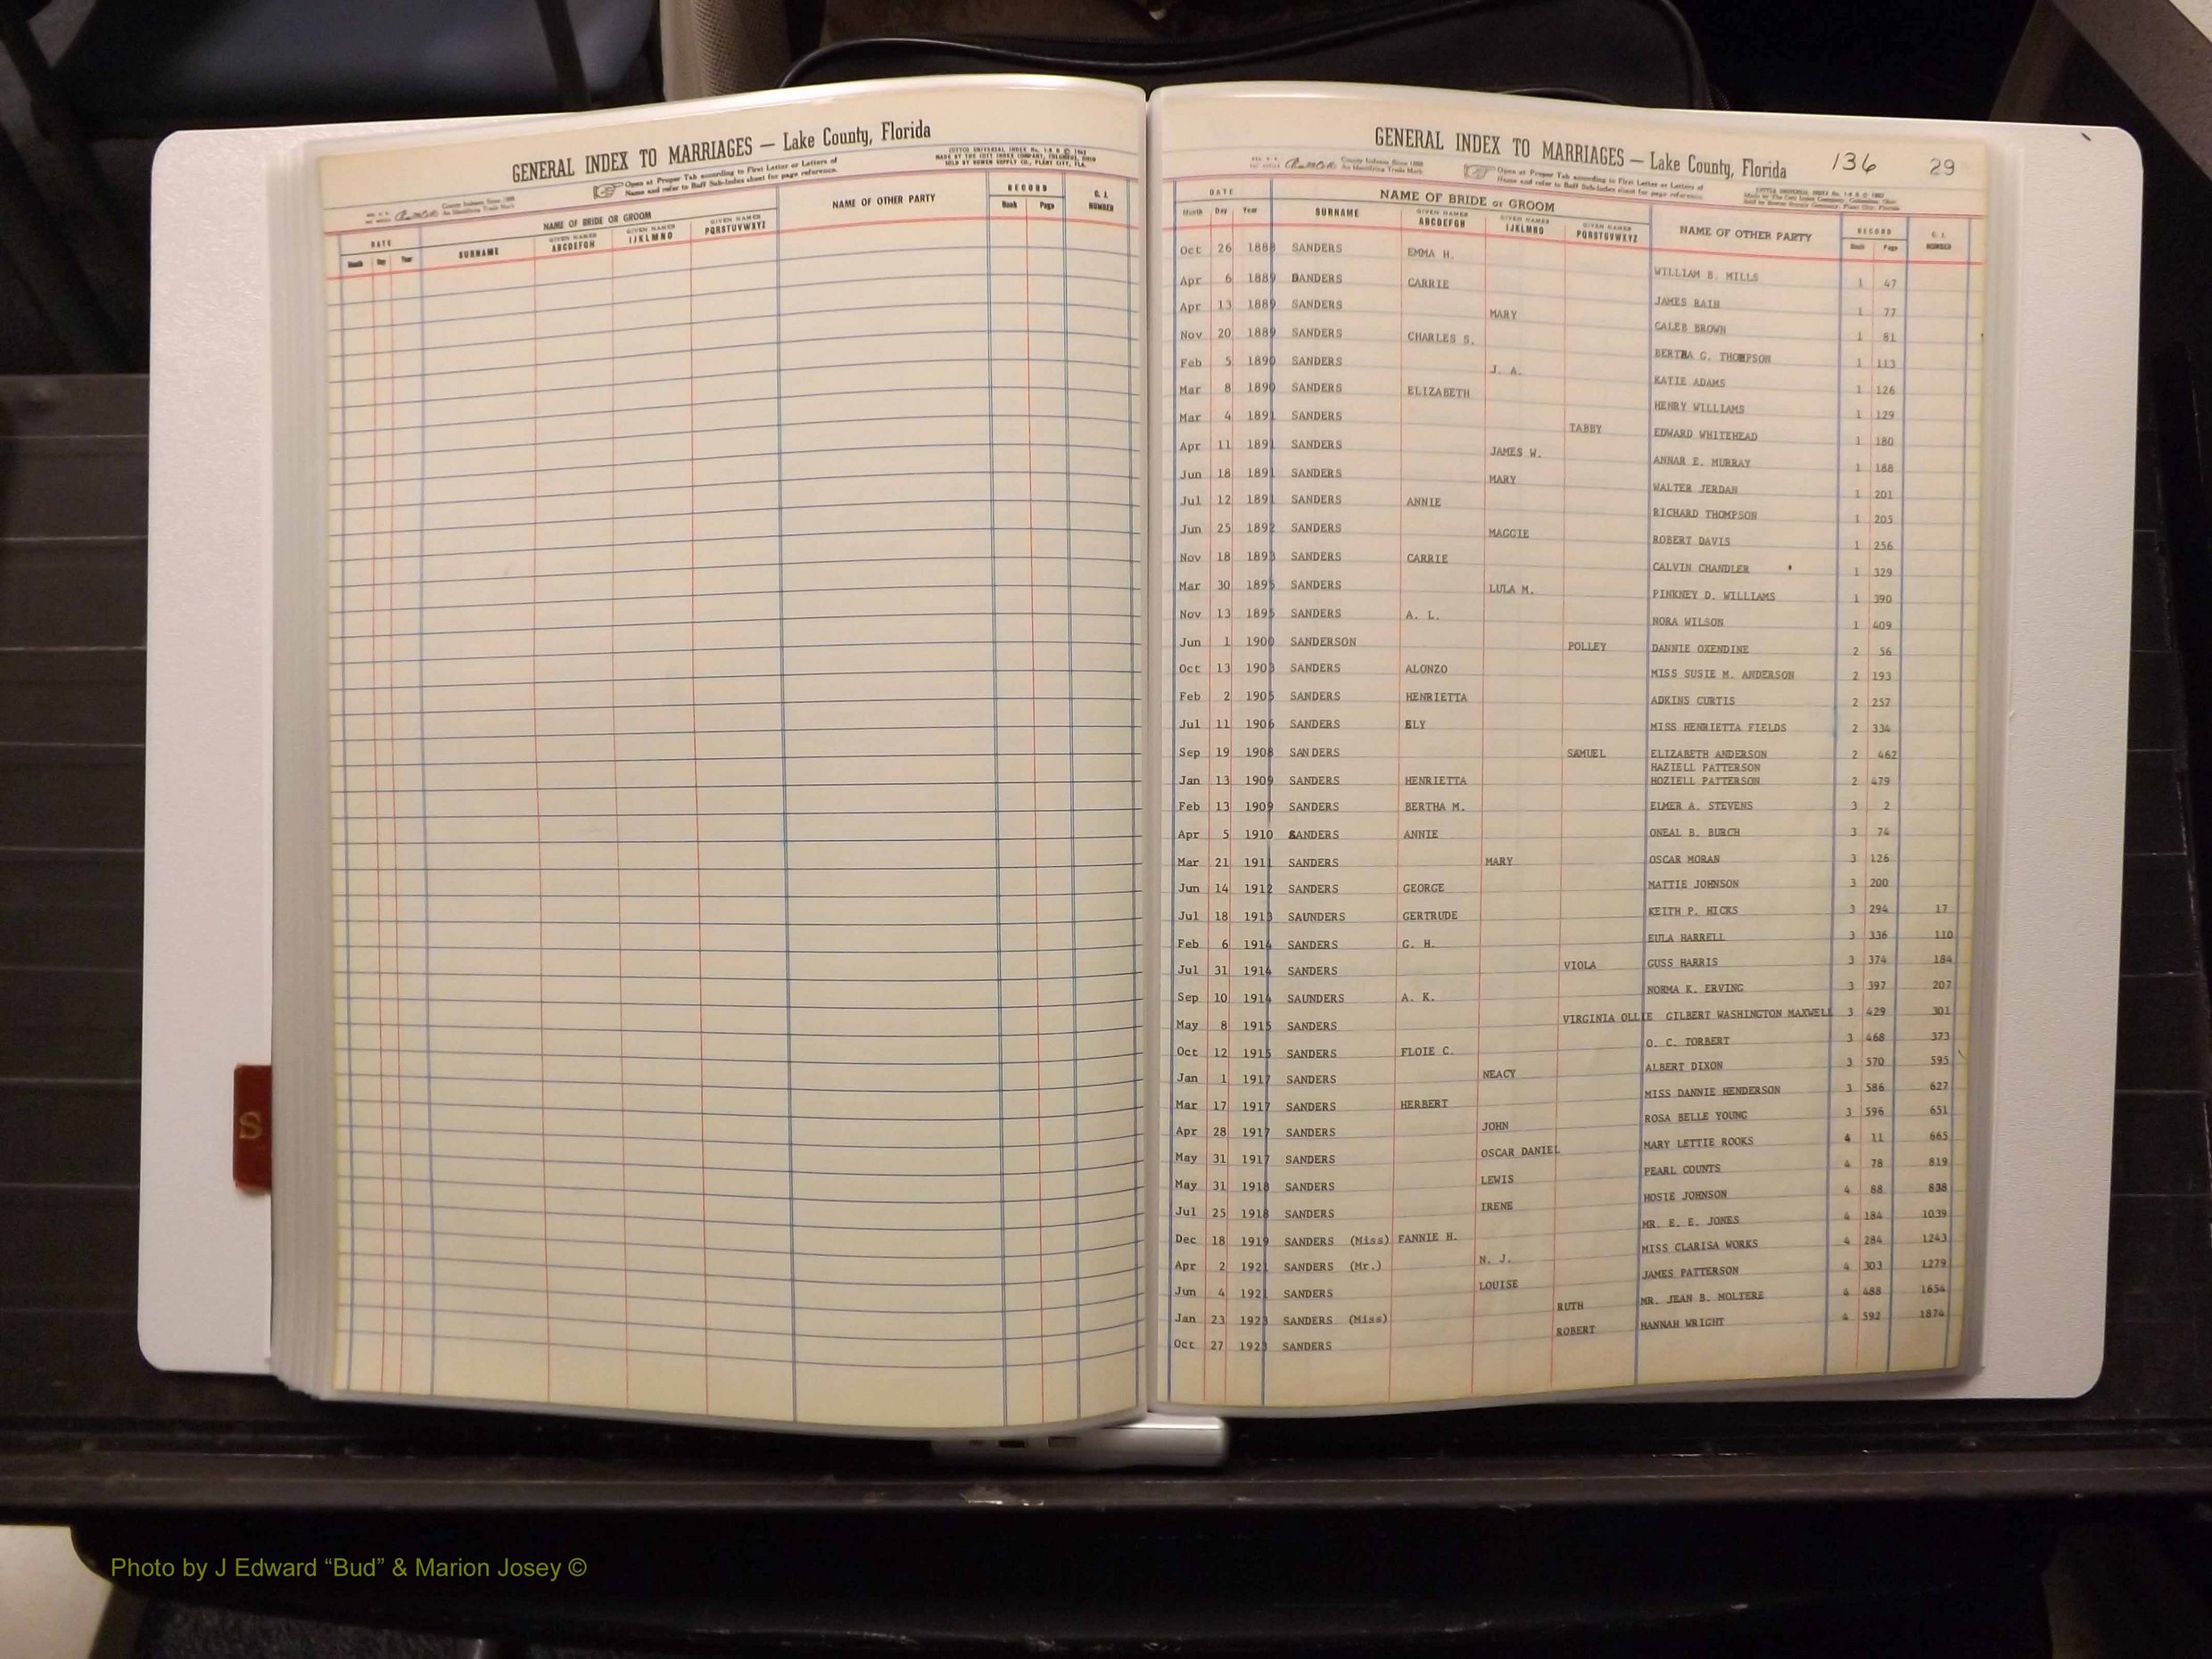 GENERAL INDEX TO MARRIAGES — Lake County, Florida
Open at Proper Tab according to First Letter or Letters of
Name and refer to Buff Sub-Index sheet for page reference.
COTTED UNIVERSAL INDEX
MADE BY THE COTT INDEX COMPANY, COLUMBUS, OHIO
SOLD BY BOWEN SUPPLY CO., PLANT CITY, FLA.
County Indexes Since 1888
An Identifying Trade Mark
DATE NAME OF BRIDE OR GROOM NAME OF OTHER PARTY RECORD C. I. NUMBER
Month Day Year SURNAME GIVEN NAMES ABCDEFGH GIVEN NAMES IJKLMNO GIVEN NAMES PQRSTUVWXYZ Book Page
S
GENERAL INDEX TO MARRIAGES — Lake County, Florida 136 29
County Indexes Since 1888
An Identifying Trade Mark
Open at Proper Tab according to First Letter or Letters of
Name and refer to Buff Sub-Index sheet for page reference.
DATE NAME OF BRIDE or GROOM NAME OF OTHER PARTY RECORD C. I. NUMBER
Month Day Year SURNAME GIVEN NAMES ABCDEFGH GIVEN NAMES IJKLMNO GIVEN NAMES PQRSTUVWXYZ Book Page
Oct 26 1888 SANDERS EMMA H. WILLIAM B. MILLS 1 47
Apr 6 1889 SANDERS CARRIE JAMES RAIN 1 77
Apr 13 1889 SANDERS MARY CALEB BROWN 1 81
Nov 20 1889 SANDERS CHARLES S. BERTHA G. THOMPSON 1 113
Feb 5 1890 SANDERS J. A. KATIE ADAMS 1 126
Mar 8 1890 SANDERS ELIZABETH HENRY WILLIAMS 1 129
Mar 4 1891 SANDERS TABBY EDWARD WHITEHEAD 1 180
Apr 11 1891 SANDERS JAMES W. ANNAR E. MURRAY 1 188
Jun 18 1891 SANDERS MARY WALTER JERDAN 1 201
Jul 12 1891 SANDERS ANNIE RICHARD THOMPSON 1 205
Jun 25 1892 SANDERS MAGGIE ROBERT DAVIS 1 256
Nov 18 1893 SANDERS CARRIE CALVIN CHANDLER 1 329
Mar 30 1895 SANDERS LULA M. PINKNEY D. WILLIAMS 1 390
Nov 13 1895 SANDERS A. L. NORA WILSON 1 409
Jun 1 1900 SANDERSON POLLEY DANNIE OXENDINE 2 56
Oct 13 1903 SANDERS ALONZO MISS SUSIE M. ANDERSON 2 193
Feb 2 1905 SANDERS HENRIETTA ADKINS CURTIS 2 257
Jul 11 1906 SANDERS ELY MISS HENRIETTA FIELDS 2 334
Sep 19 1908 SAN DERS SAMUEL ELIZABETH ANDERSON 2 462
HAZIELL PATTERSON
Jan 13 1909 SANDERS HENRIETTA HOZIELL PATTERSON 2 479
Feb 13 1909 SANDERS BERTHA M. ELMER A. STEVENS 3 2
Apr 5 1910 SANDERS ANNIE ONEAL B. BURCH 3 74
Mar 21 1911 SANDERS MARY OSCAR MORAN 3 126
Jun 14 1912 SANDERS GEORGE MATTIE JOHNSON 3 200
Jul 18 1913 SAUNDERS GERTRUDE KEITH P. HICKS 3 294 17
Feb 6 1914 SANDERS G. H. EULA HARRELL 3 336 110
Jul 31 1914 SANDERS VIOLA GUSS HARRIS 3 374 184
Sep 10 1914 SAUNDERS A. K. NORMA K. ERVING 3 397 207
May 8 1915 SANDERS VIRGINIA OLLIE GILBERT WASHINGTON MAXWELL 3 429 301
Oct 12 1915 SANDERS FLOIE C. O. C. TORBERT 3 468 373
Jan 1 1917 SANDERS NEACY ALBERT DIXON 3 570 595
Mar 17 1917 SANDERS HERBERT MISS DANNIE HENDERSON 3 586 627
Apr 28 1917 SANDERS JOHN ROSA BELLE YOUNG 3 596 651
May 31 1917 SANDERS OSCAR DANIEL MARY LETTIE ROOKS 4 11 665
May 31 1918 SANDERS LEWIS PEARL COUNTS 4 78 819
Jul 25 1918 SANDERS IRENE HOSIE JOHNSON 4 88 838
Dec 18 1919 SANDERS (Miss) FANNIE H. MR. E. E. JONES 4 184 1039
Apr 2 1921 SANDERS (Mr.) N. J. MISS CLARISA WORKS 4 284 1243
Jun 4 1921 SANDERS LOUISE JAMES PATTERSON 4 303 1279
Jan 23 1923 SANDERS (Miss) RUTH MR. JEAN B. MOLTERE 4 488 1654
Oct 27 1923 SANDERS ROBERT HANNAH WRIGHT 4 592 1874
Photo by J Edward “Bud” & Marion Josey ©